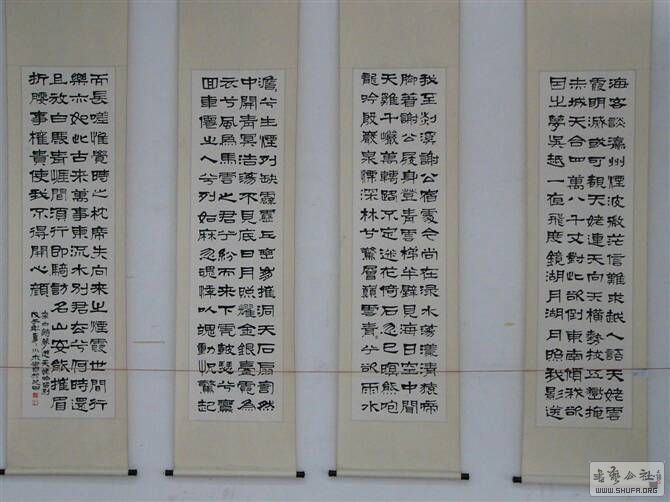 海客談瀛州煙波微茫信難求越人語天姥雲
霞明滅或可觀天姥連天向天橫勢拔五嶽掩
赤城天台四萬八千丈對此欲倒東南傾我欲
因之夢吳越一夜飛度鏡湖月湖月照我影送
我至剡溪謝公宿處今尚在淥水蕩漾清猿啼
脚着謝公屐身登青雲梯半壁見海日空中聞
天雞千巖萬轉路不定迷花倚石忽已暝熊咆
龍吟殷巖泉慄深林兮驚層巔雲青兮欲雨水
澹兮生煙列缺霹靂丘巒崩摧洞天石扇訇然
中開青冥浩蕩不見底日月照耀金銀臺霓為
衣兮風為馬雲之君兮紛而來下虎鼓瑟兮鸞
回車僊之人兮列如麻忽魂悸以魄動怳驚起
而長嗟惟覺時之枕席失向來之煙霞世間行
樂亦如此古來萬事東流水別君去兮何時還
且放白鹿青崖間須行即騎動名山安能摧眉
折腰事權貴使我不得開心顏
李白詩夢遊天姥吟留別
WWW.SHUFA.ORG